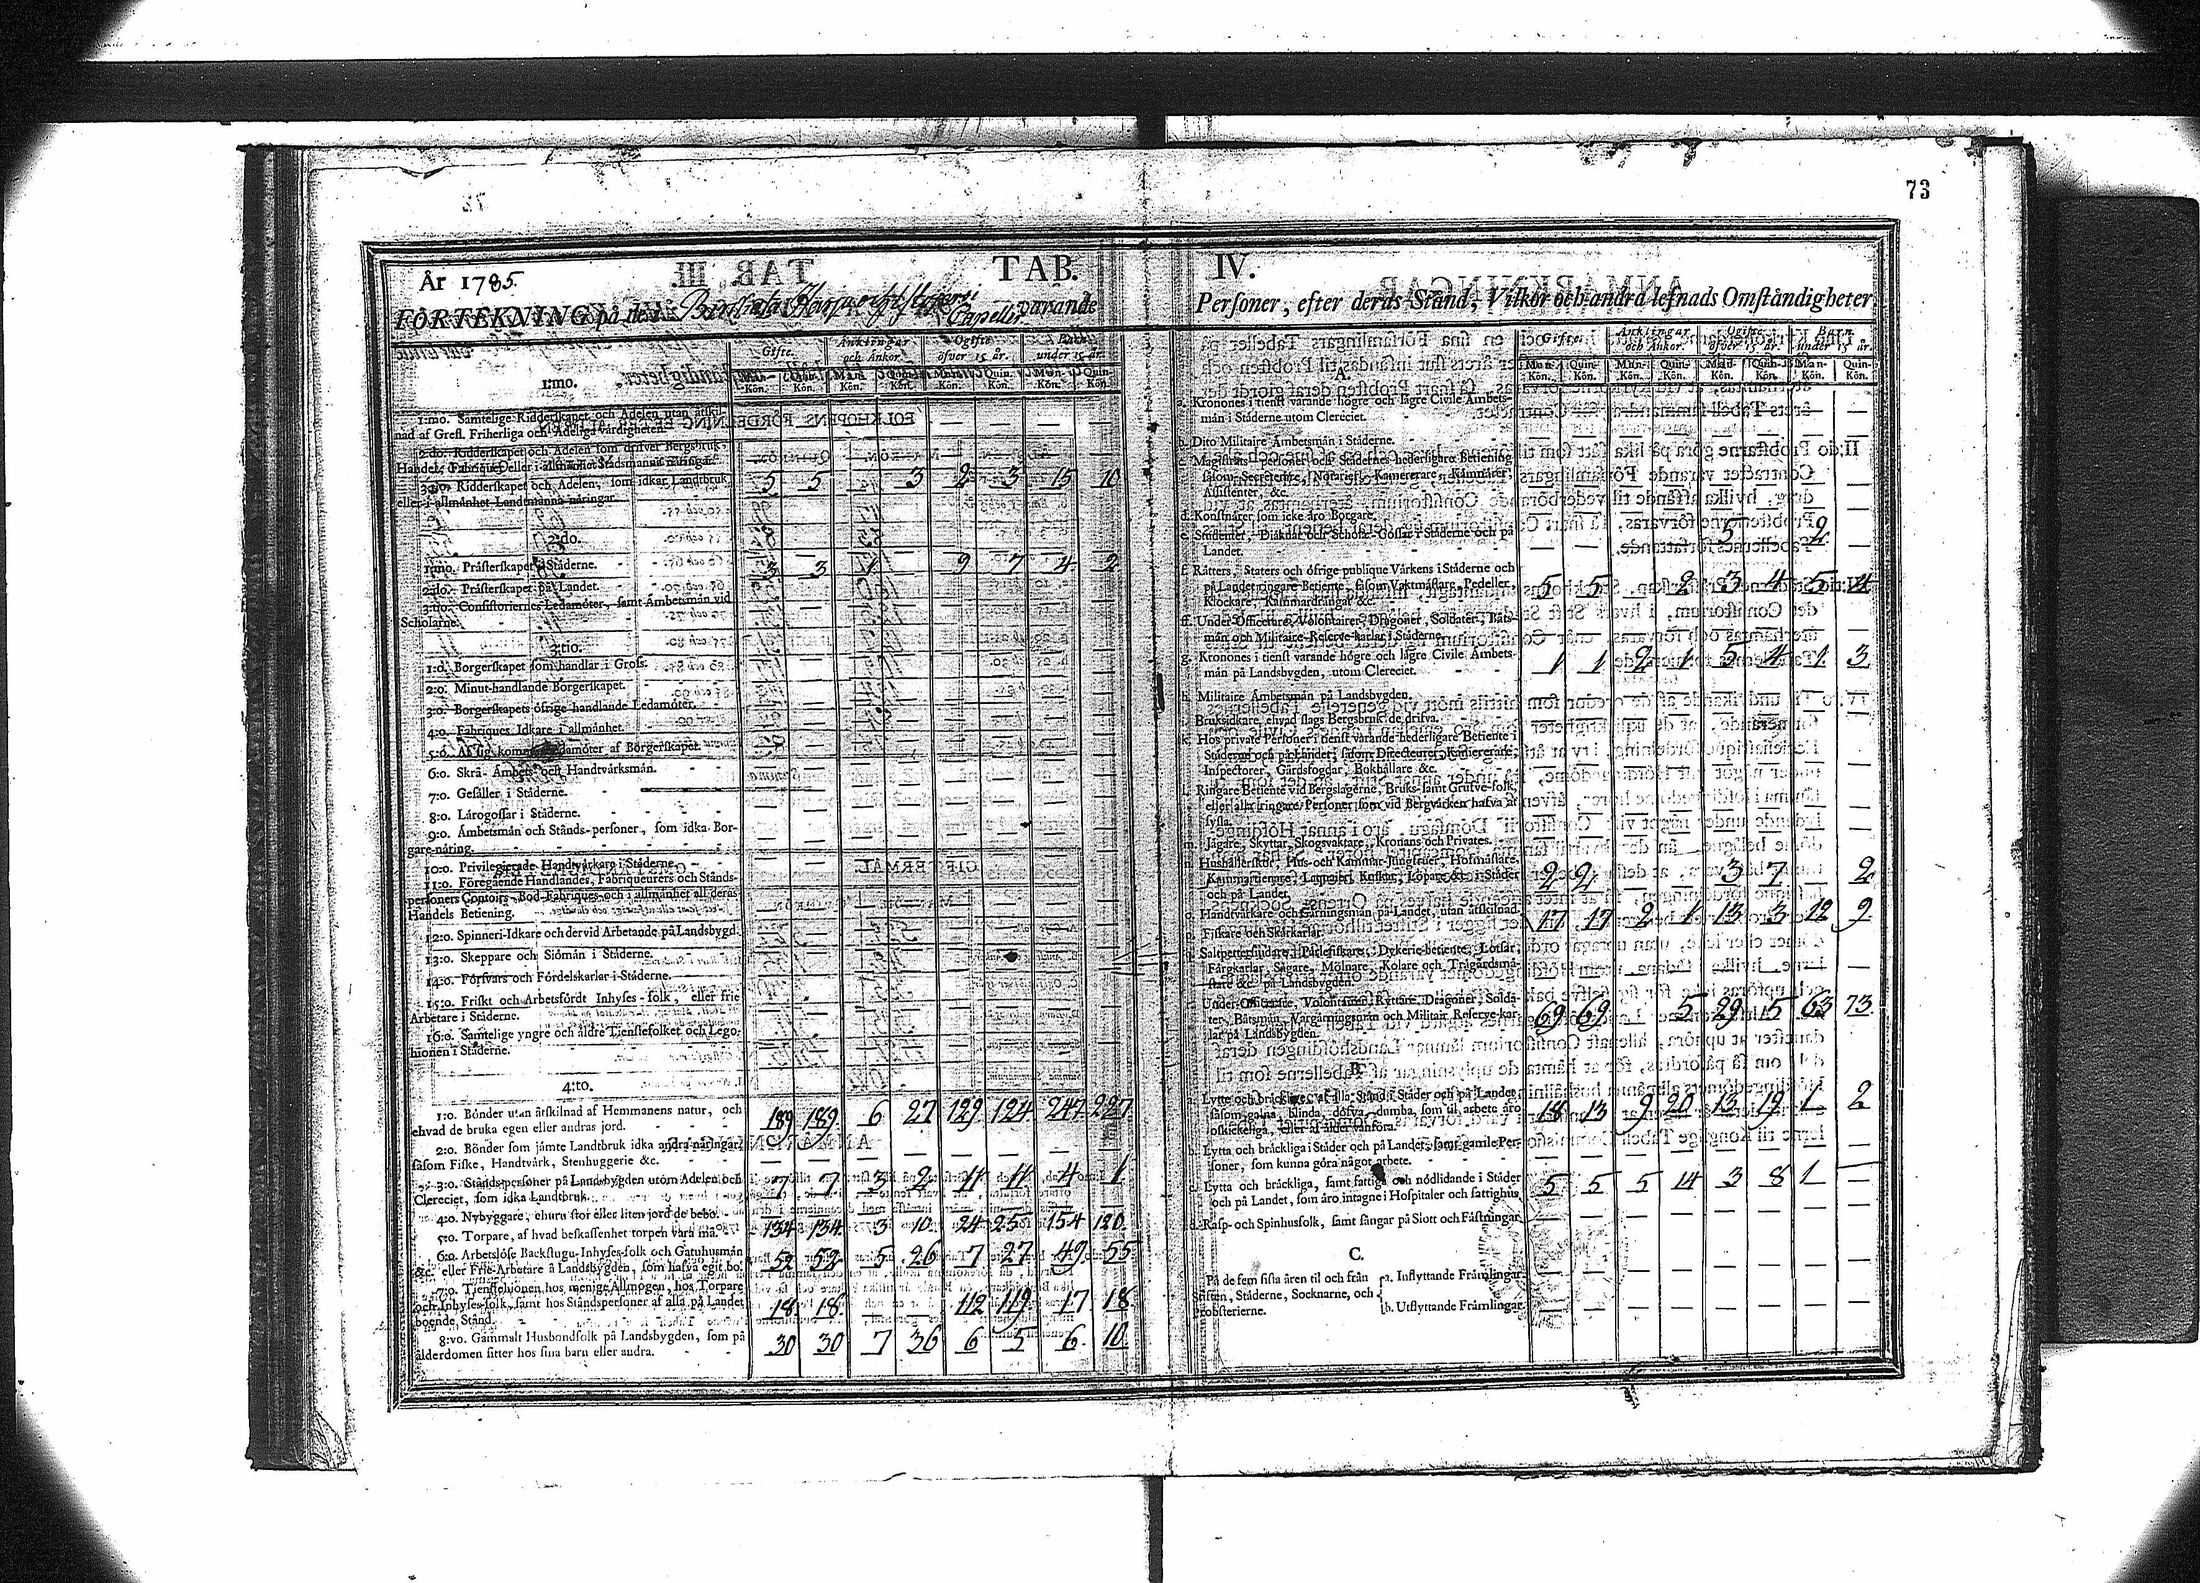 73
År 1785.
TAB. IV.
FÖRTEKNING på de i Capeller varande Personer, efter deras Stånd, Vilkor och andra lefnads Omståndigheter.
Gifte. Änklingar och Änkor. Ogifte öfver 15 år. Barn under 15 år.
Man-Kön. Quin-Kön. Man-Kön. Quin-Kön. Man-Kön. Quin-Kön. Man-Kön. Quin-Kön.
1:mo.
1:mo. Samtelige Ridderskapet och Adelen utan åtskil-
nad af Grefl. Friherliga och Adeliga vårdigheter.
2:do. Ridderskapet och Adelen som drifver Bergsbruk,
Handel, Fabriquer eller i allmånhet Stadsmanna nåringar.
3:tio. Ridderskapet och Adelen, som idkar Landtbruk
eller i allmånhet Landtmanna nåringar. 5 5 3 2 3 15 10
2:do.
1:mo. Pråsterskapet i Ståderne.
2:do. Pråsterskapet på Landet. 3 3 1 9 7 4 2
3:tio. Consistoriernes Ledamöter, samt Ämbetsmån vid
Scholarne.
3:tio.
1:o. Borgerskapet som handlar i Gross.
2:o. Minut-handlande Borgerskapet.
3:o. Borgerskapets öfrige handlande Ledamöter.
4:o. Fabriques Idkare i allmånhet.
5:o. Ledamöter af Borgerskapet.
6:o. Skrå-Ämbets och Handtvårksmån.
7:o. Gesåller i Ståderne.
8:o. Lårogossar i Ståderne.
9:o. Ämbetsmån och Stånds-personer, som idka Bor-
gare-nåring.
10:o. Privilegierade Handtvårkare i Ståderne.
11:o. Föregående Handlandes, Fabriqueurers och Stånds-
personers Contoirs, Bod-Fabriques och i allmånhet all deras
Handels Betiening.
12:o. Spinneri-Idkare och dervid Arbetande på Landsbygd.
13:o. Skeppare och Siömån i Ståderne.
14:o. Försvars och Fördelskarlar i Ståderne.
15:o. Friskt och Arbetsfördt Inhyses-folk, eller frie
Arbetare i Ståderne.
16:o. Samtelige yngre och åldre Tienstefolket och Lego-
hionen i Ståderne.
4:to.
1:o. Bönder utan åtskilnad af Hemmanens natur, och
ehvad de bruka egen eller andras jord. 189 189 6 27 129 124 247 227
2:o. Bönder som jåmte Landtbruk idka andra nåringar,
såsom Fiske, Handtvårk, Stenhuggerie &c.
3:o. Ståndspersoner på Landsbygden utom Adelen och
Clereciet, som idka Landtbruk. 7 7 3 2 11 11 4 1
4:o. Nybyggare, ehuru stor eller liten jord de bebo.
5:o. Torpare, af hvad beskaffenhet torpen vara må. 134 134 3 10 24 25 154 120
6:o. Arbetslöse Backstugu-Inhyses-folk och Gatuhusmån
&c. eller Frie-Arbetare å Landsbygden, som hafva eget bo. 52 52 5 26 7 27 49 55
7:o. Tienstehionen hos menige Allmogen, hos Torpare
och Inhyses-folk, samt hos Ståndspersoner af alla på Landet
boende Stånd. 18 18 112 119 17 18
8:vo. Gammalt Husbondfolk på Landsbygden, som på
ålderdomen sitter hos sina barn eller andra. 30 30 7 36 6 5 6 10
Gifte. Änklingar och Änkor. Ogifte öfver 15 år. Barn under 15 år.
Man-Kön. Quin-Kön. Man-Kön. Quin-Kön. Man-Kön. Quin-Kön. Man-Kön. Quin-Kön.
A.
a. Kronones i tienst varande högre och lågre Civile Ämbets-
mån i Ståderne utom Clereciet.
b. Dito Militaire Ämbetsmån i Ståderne.
c. Magistrats-personer och Stådernes hederligare Betiening
såsom Secreterare, Notarier, Kamererare, Kåmnårer,
Assistenter, &c.
d. Konstnårer som icke åro Borgare.
e. Studenter, Diåknar och Schole-Gossar i Ståderne och på
Landet. 5 2
f. Råtters, Staters och öfrige publique Vårkens i Ståderne och
på Landet ringare Betiente, såsom Vaktmåstare, Pedeller,
Klockare, Kammardrångar &c. 5 5 2 3 4 5 4
ff. Under-Officerare, Volontairer, Dragoner, Soldater, Båts-
mån och Militaire-Reserve-karlar i Ståderne.
g. Kronones i tienst varande högre och lågre Civile Ämbets-
mån på Landsbygden, utom Clereciet. 1 1 2 1 5 4 1 3
h. Militaire Ämbetsmån på Landsbygden.
i. Bruksidkare, ehvad slags Bergsbruk de drifva.
k. Hos private Personer i tienst varande hederligare Betiente i
Ståderne och på Landet, såsom Directeurer, Kamererare,
Inspectorer, Gårdsfogdar, Bokhållare &c.
l. Ringare Betiente vid Bergslagerne, Bruks-samt Grufve-folk,
eller alla ringare Personer som vid Bergvårken hafva sin
sysla.
m. Jågare, Skyttar, Skogsvaktare, Kronans och Privates.
n. Hushållerskor, Hus- och Kammar-Jungfruer, Hofmåstare,
Kammardienare, Laquaier, Kuskar, Löpare &c. i Ståder
och på Landet. 2 2 3 7 2
o. Handtvårkare och Gårningsmån på Landet, utan åtskilnad. 17 17 2 1 13 3 12 9
p. Fiskare och Skårkarlar.
q. Saltpettersiudare, Pårlefiskare, Dykerie-betiente, Lotsar,
Fårgkarlar, Sågare, Mölnare, Kolare och Trågårdsmå-
stare &c. på Landsbygden.
r. Under-Officerare, Volontairer, Ryttare, Dragoner, Solda-
ter, Båtsmån, Vargåringsmån och Militair Reserve-kar-
lar på Landsbygden. 69 69 5 29 5 63 73
B.
a. Lytte och bråcklige, af alla Stånd i Ståder och på Landet,
såsom galna, blinda, döfva, dumba, som til arbete åro
oskickeliga, eller af ålder vanföra. 18 13 9 20 13 19 1 2
b. Lytta och bråckliga i Ståder och på Landet, samt gamle Per-
soner, som kunna göra något arbete.
c. Lytta och bråckliga, samt fattige och nödlidande i Ståder
och på Landet, som åro intagne i Hospitaler och fattighus. 5 5 5 14 3 8 1
d. Rasp- och Spinhusfolk, samt fångar på Slott och Fåstningar.
C.
På de fem sista åren til och från
Stiften, Ståderne, Socknarne, och
Probsterierne.
a. Inflyttande Fråmlingar.
b. Utflyttande Fråmlingar.